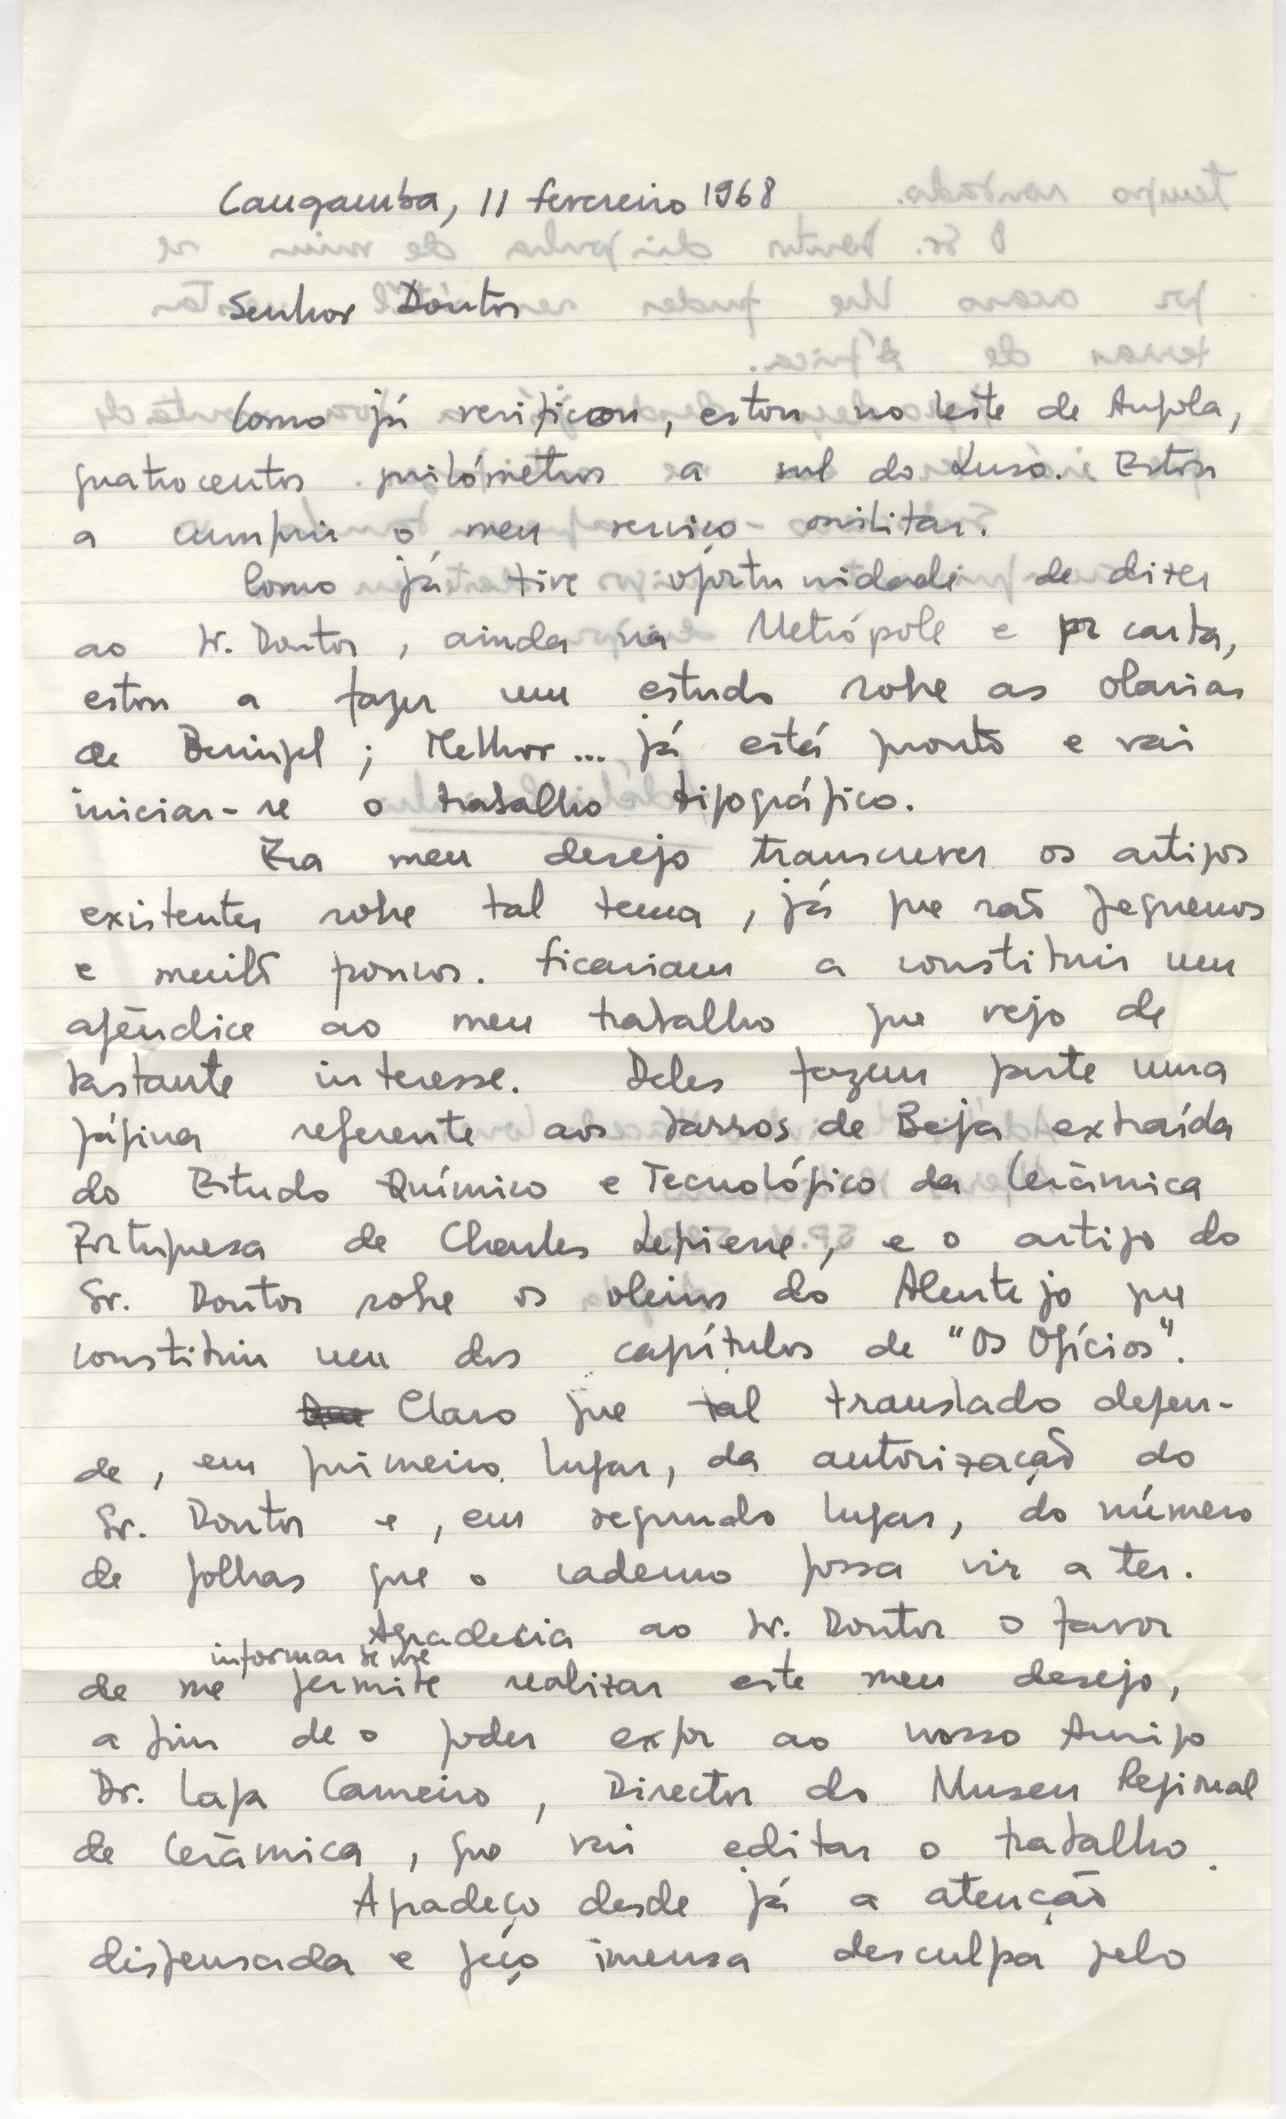 Cangamba, 11 fevereiro 1968
Senhor Doutor
Como já verificou, estou no leste de Angola,
quatrocentos quilómetros a sul do Luso. Estou
a cumprir o meu serviço militar.
Como já tive oportunidade de dizer
ao Sr. Doutor, ainda na Metrópole e por carta,
estou a fazer um estudo sobre as olarias
de Beringel; Melhor... já está pronto e vai
iniciar-se o trabalho tipográfico.
Era meu desejo transcrever os artigos
existentes sobre tal tema, já que são pequenos
e muito poucos. Ficariam a constituir um
apêndice ao meu trabalho que vejo de
bastante interesse. Deles fazem parte uma
página referente aos barros de Beja extraída
do Estudo Químico e Tecnológico da Cerâmica
Portuguesa de Charles Lepierre, e o artigo do
Sr. Doutor sobre os oleiros do Alentejo que
constitui um dos capítulos de "Os Ofícios".
Claro que tal translado depen-
de, em primeiro lugar, da autorização do
Sr. Doutor e, em segundo lugar, do número
de folhas que o caderno possa vir a ter.
Agradecia ao Sr. Doutor o favor
informar se me
de me permite realizar este meu desejo,
a fim de o poder expor ao nosso Amigo
Dr. Lapa Carneiro, Director do Museu Regional
de Cerâmica, que vai editar o trabalho.
Agradeço desde já a atenção
dispensada e peço imensa desculpa pelo